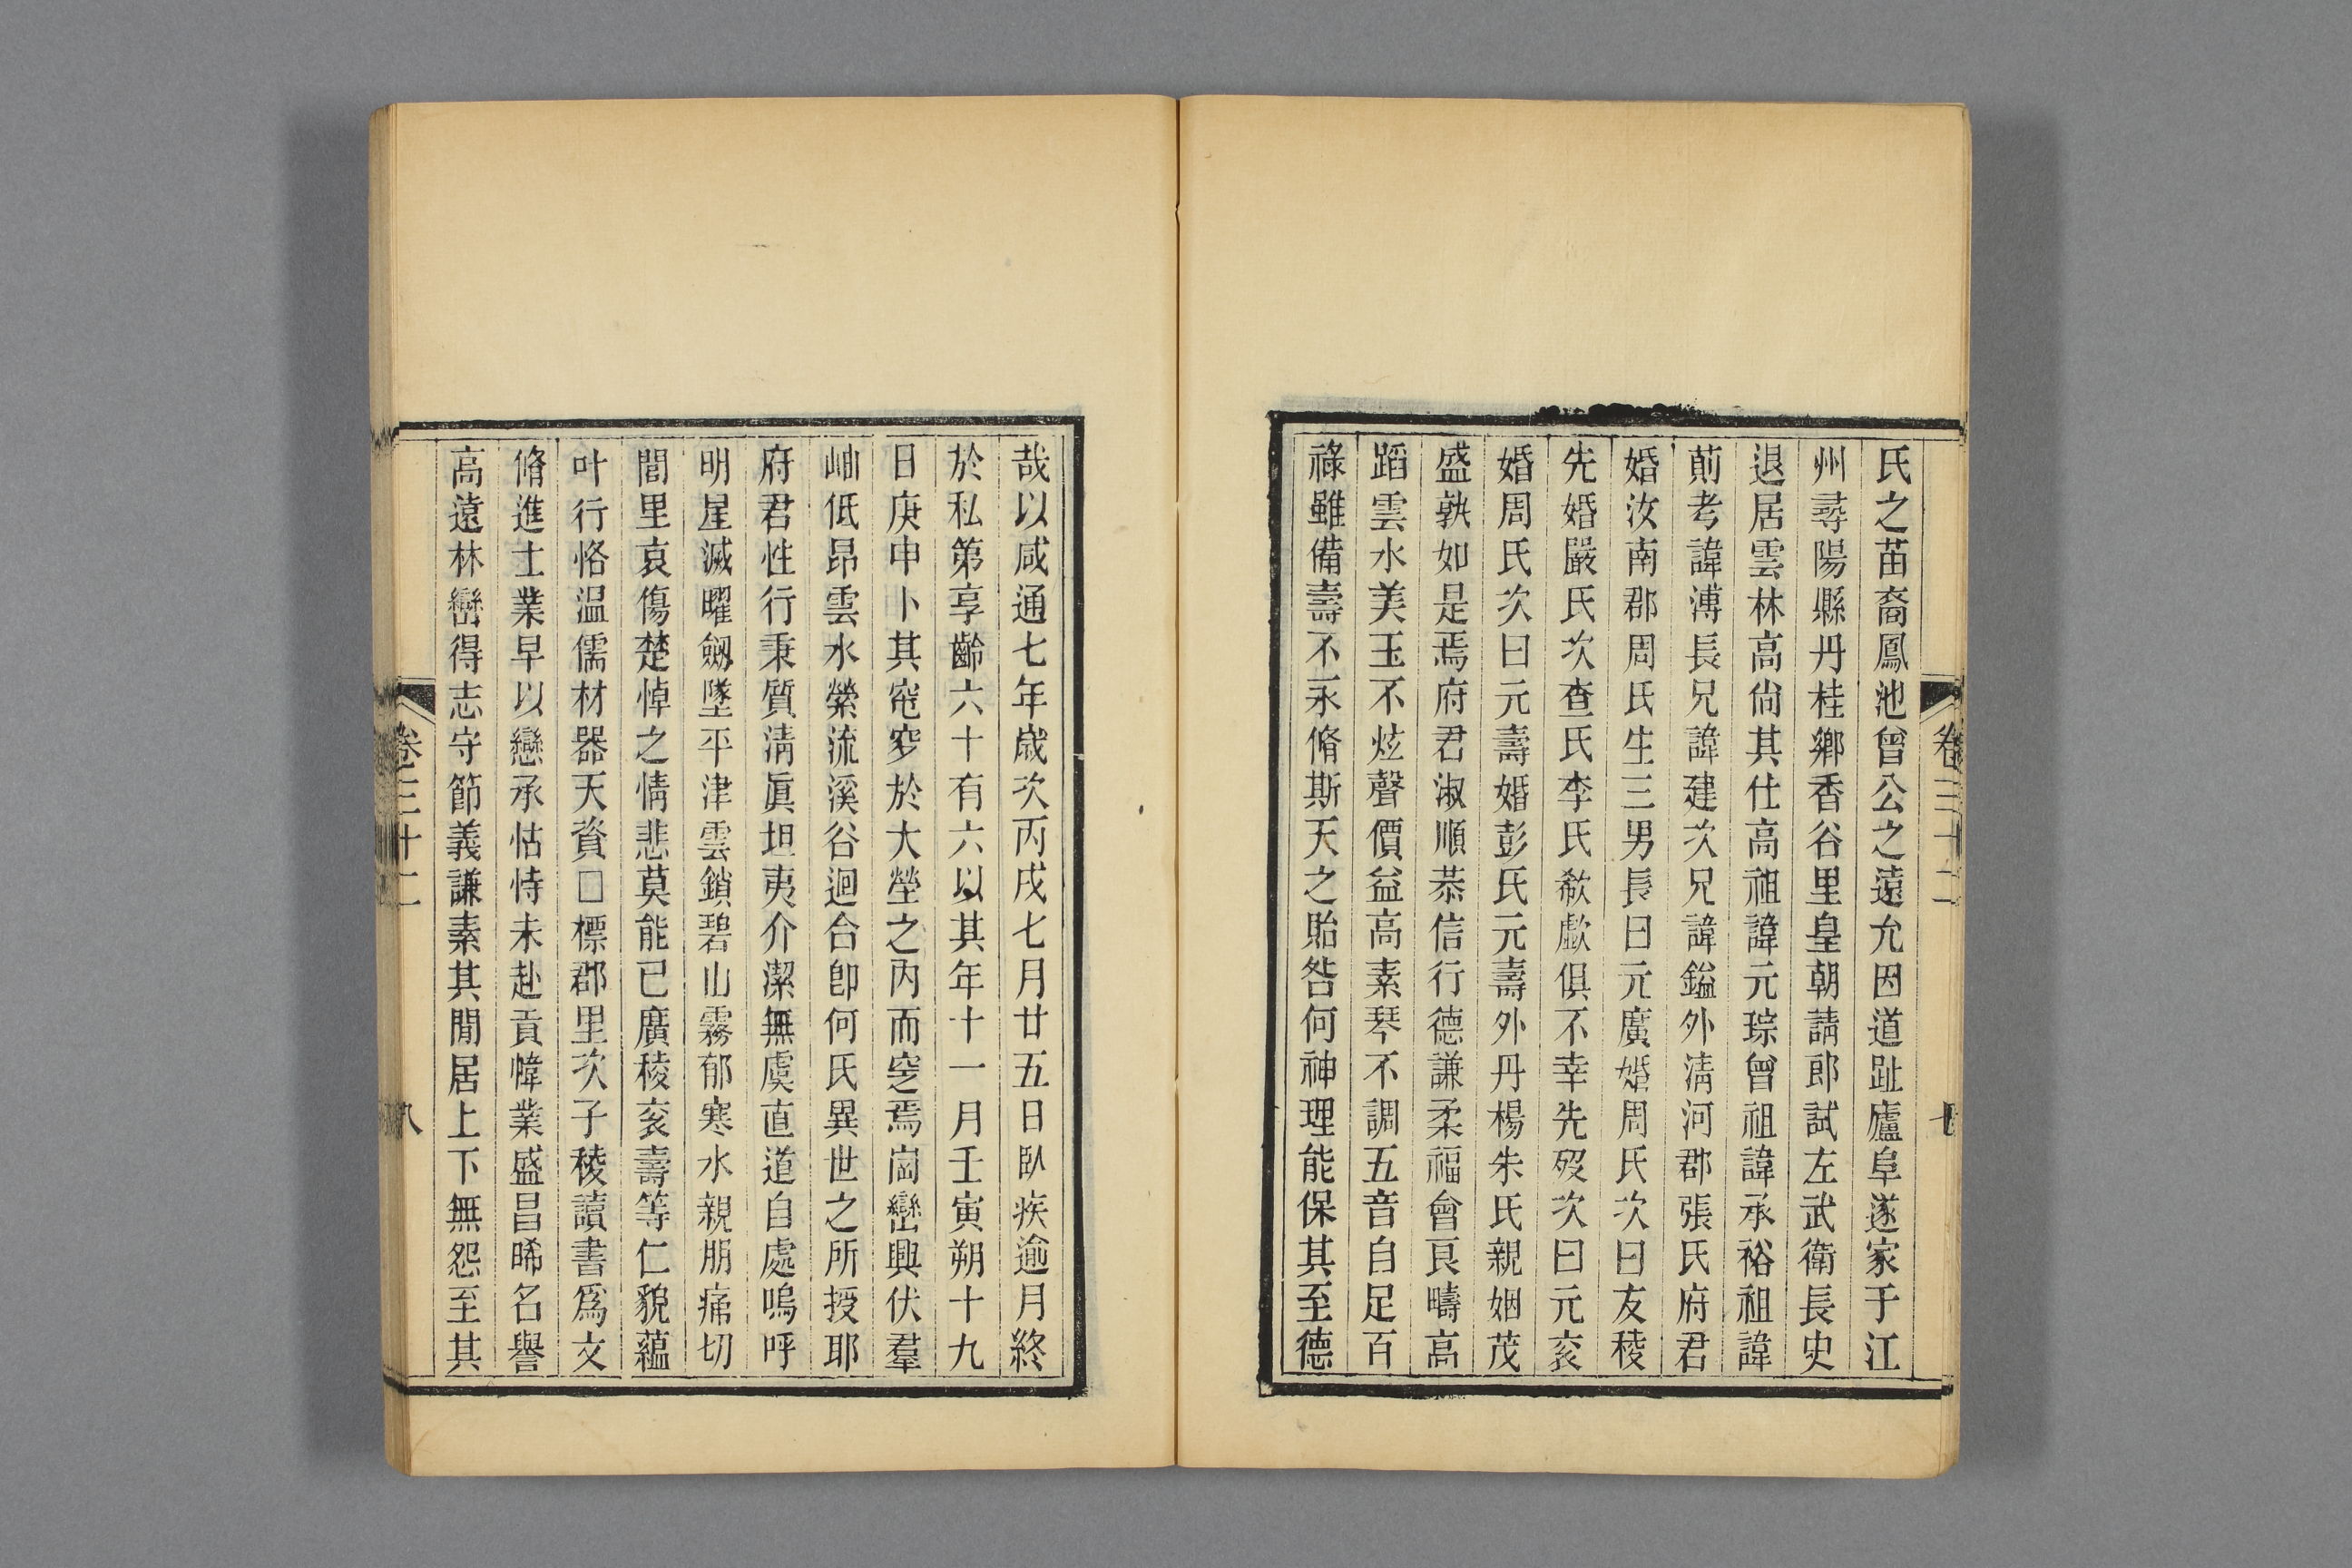 氏之苗裔鳳池曾公之遠允因道趾廬阜遂家于江
州尋陽縣丹桂鄉香谷里皇朝請郎試左武衛長史
退居雲林高尙其仕高祖諱元琮曾祖諱承裕祖諱
荊考諱溥長兄諱建次兄諱鎰外淸河郡張氏府君
婚汝南郡周氏生三男長曰元廣婚周氏次曰友稜
先婚嚴氏次查氏李氏欷歔俱不幸先歿次曰元亥
婚周氏次曰元壽婚彭氏元壽外丹楊朱氏親姻茂
盛孰如是焉府君淑順恭信行德謙柔福會良疇高
蹈雲水美玉不炫聲價益高素琴不調五音自足百
祿雖備壽不永脩斯天之貽咎何神理能保其至德
卷三十二
七
哉以咸通七年歲次丙戌七月廿五日臥疾逾月終
於私第享齡六十有六以其年十一月壬寅朔十九
日庚申卜其窀穸於大塋之內而窆焉崗巒興伏羣
岫低昂雲水縈流溪谷迴合卽何氏異世之所授耶
府君性行秉質淸眞坦夷介潔無虞直道自處嗚呼
明星滅曜劒墜平津雲鎖碧山霧郁寒水親朋痛切
閭里哀傷楚悼之情悲莫能已廣稜亥壽等仁貌蘊
叶行恪溫儒材器天資□標郡里次子稜讀書爲文
脩進士業早以戀承怙恃未赴貢幃業盛昌晞名譽
高遠林巒得志守節義謙素其閒居上下無怨至其
卷三十二
八